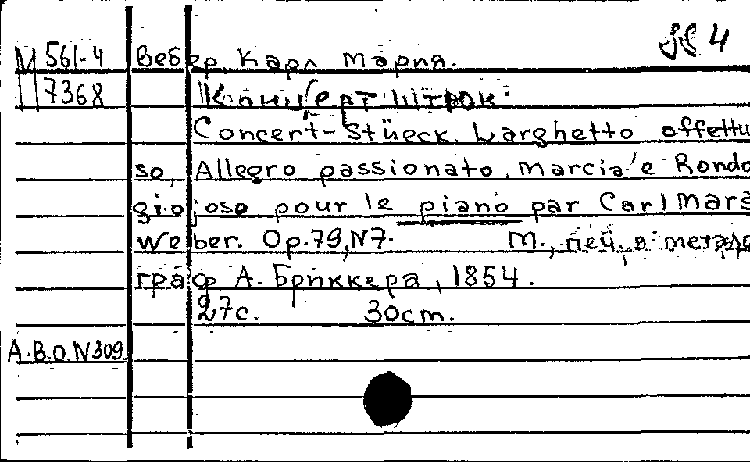 М 561-4 Вебер, Карл Мария. 4
7368 Концерт штюк.
Concert-Stüeck. Larghetto affettu
so, Allegro passionato, Marcia e Rondo
giojoso pour le piano par Carl Maria
Weber. Op.79, N7. М., печ. в металло
граф А. Бриккера, 1854.
27с. 30cm.
А.В.О. N 309